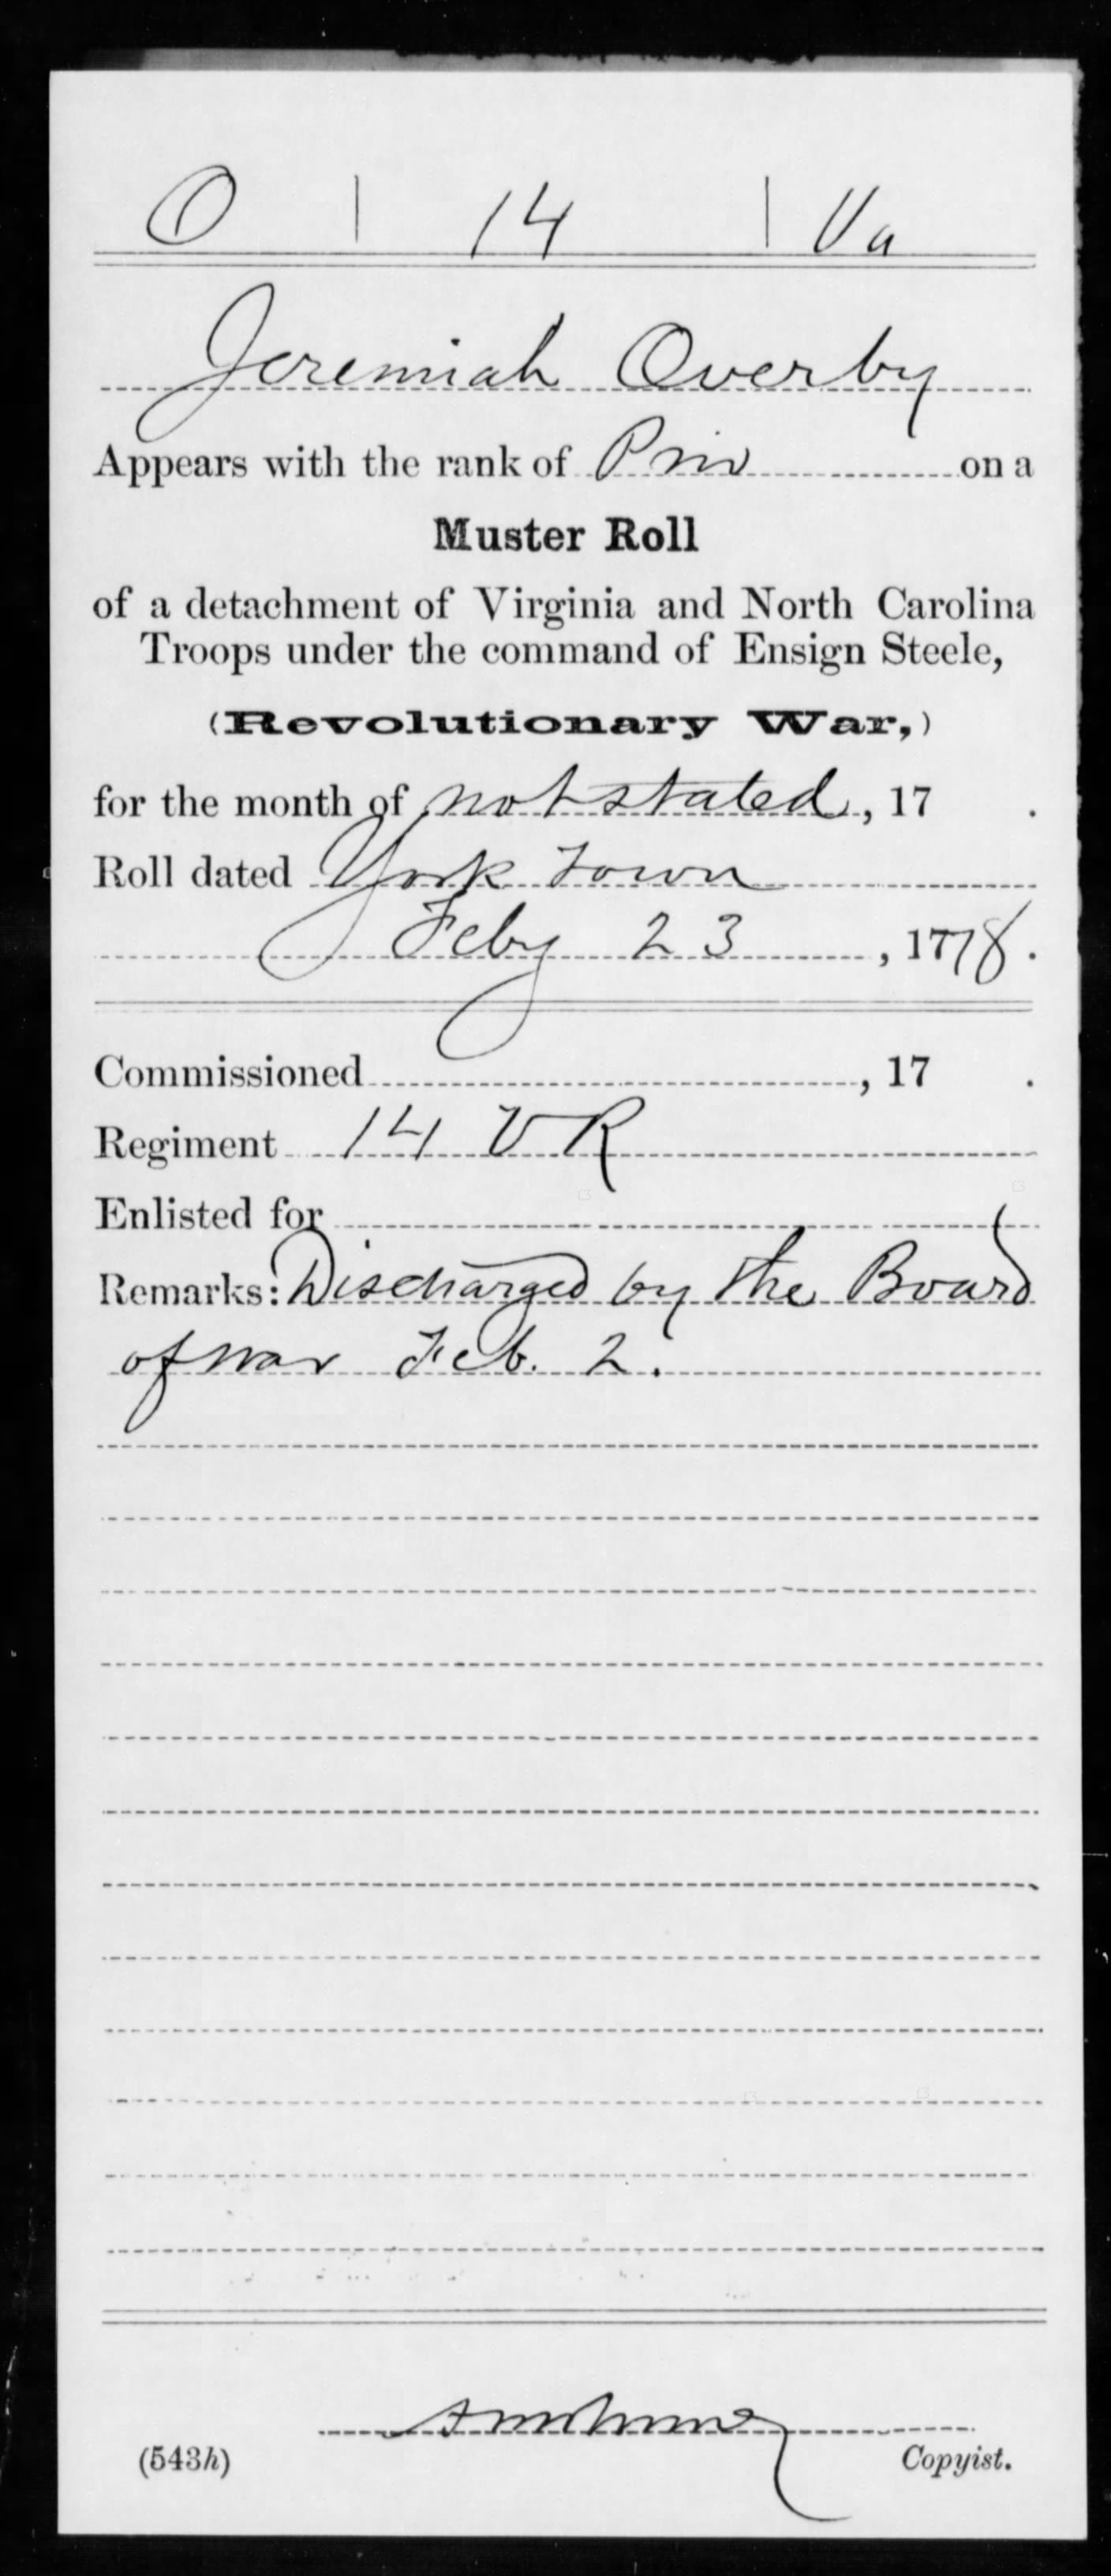 O | 14 | Va
Jeremiah Overby
Appears with the rank of Priv on a
Muster Roll
of a detachment of Virginia and North Carolina
Troops under the command of Ensign Steele,
(Revolutionary War,)
for the month of not stated, 17 .
Roll dated York Town
Feby 23, 1778.
Commissioned , 17 .
Regiment 14 VR
Enlisted for
Remarks: Discharged by the Board
of war Feb. 2.
(543h) Copyist.